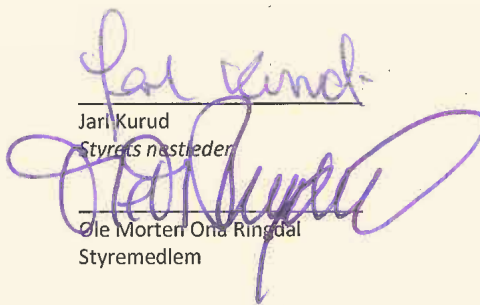 Jarl Kurud
Jarl Kurud
Styrets nestleder
Ole Morten Ona Ringdal
Styremedlem